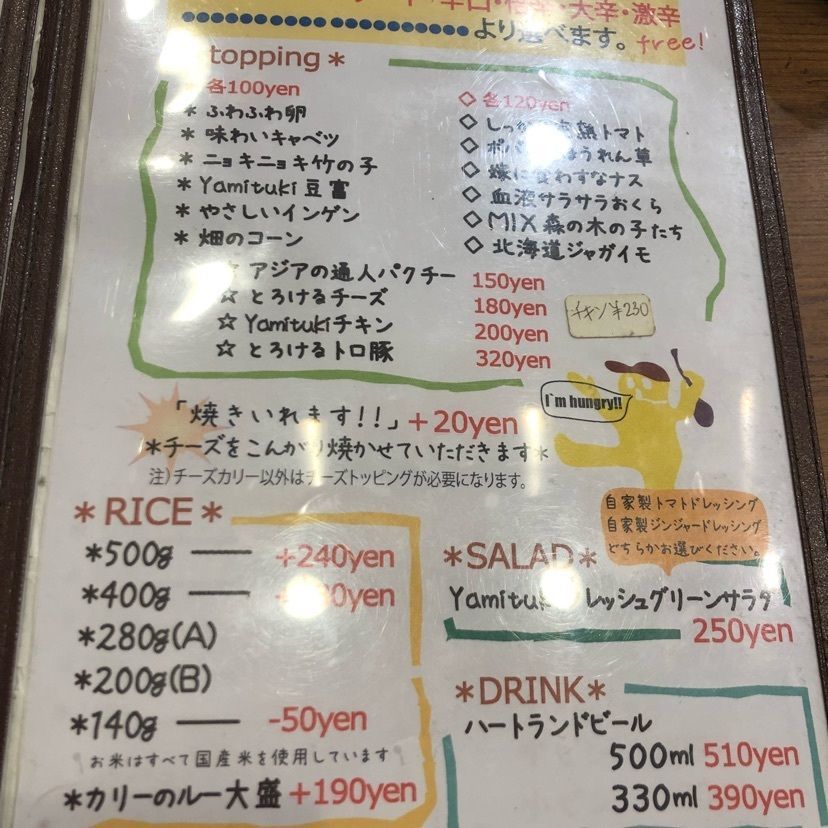 辛口・
大辛・激辛
より選べます。free!
topping *
* 各100yen
* ふわふわ卵
* 味わいキャベツ
* ニョキニョキ竹の子
* Yamituki豆富
* やさしいインゲン
* 畑のコーン
◇ 各120yen
◇ トマト
◇ ほうれん草
◇ 嫁に食わすなナス
◇ 血液サラサラおくら
◇ MIX森の木の子たち
◇ 北海道ジャガイモ
☆ アジアの通人パクチー 150yen
☆ とろけるチーズ 180yen
☆ Yamitukiチキン 200yen
☆ とろけるトロ豚 320yen
チキン¥230
「焼きいれます!!」+20yen
*チーズをこんがり焼かせていただきます*
注)チーズカリー以外はチーズトッピングが必要になります。
I'm hungry!!
*RICE*
*500g — +240yen
*400g — yen
*280g(A)
*200g(B)
*140g — -50yen
お米はすべて国産米を使用しています
*カリーのルー大盛 +190yen
自家製トマトドレッシング
自家製ジンジャードレッシング
どちらかお選びください。
*SALAD*
Yamituk レッシュグリーンサラダ
250yen
*DRINK*
ハートランドビール
500ml 510yen
330ml 390yen